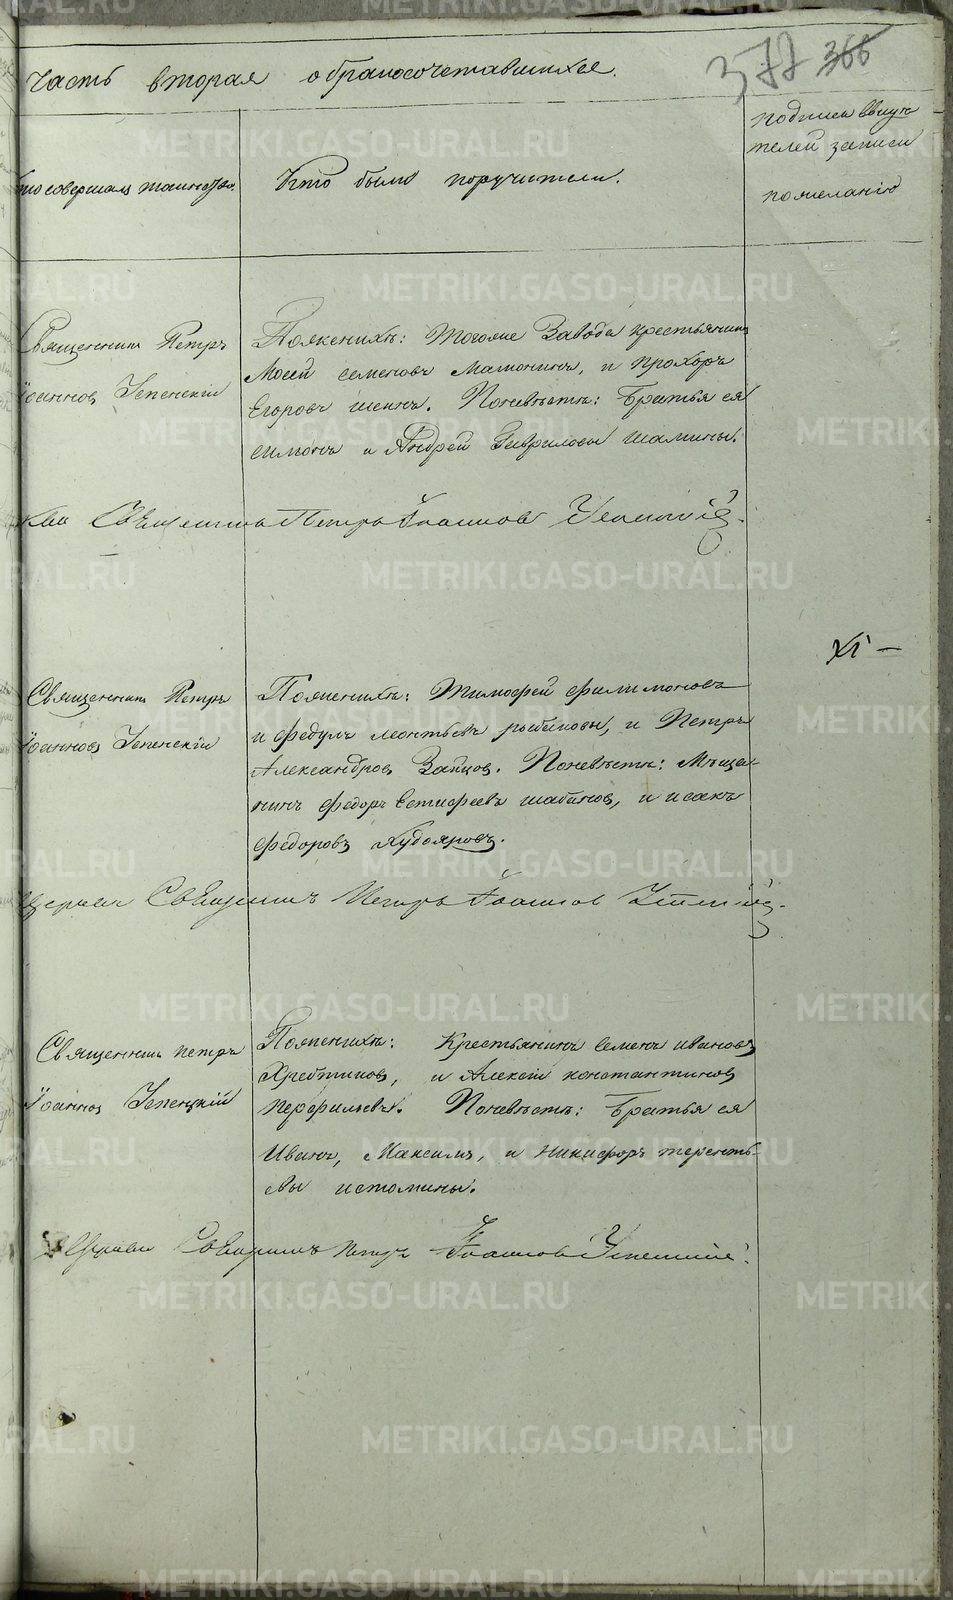 часть вторая о бракосочетавшихся.
377 366
Кто совершал таинство.
Кто были поручители.
подписи свидѣ
телей записи
по желанію
Священникъ Петръ
Іоанновъ
По женихѣ: тогоже завода крестьянинъ
Мосей семеновъ Мамонинъ, и прохоръ
Егоровъ шеинъ. По невѣстѣ: Братья ея
симонъ и Андрей Гавриловы шамины.
Священникъ Петръ Іоанновъ
XI —
Священникъ Петръ
Іоанновъ
По женихѣ: Тимофей филимоновъ
и федулъ леонтьевъ рыбаковы, и Петръ
Александровъ Зайцовъ. По невѣстѣ: Мѣща-
нинъ федоръ шабановъ, и исакъ
федоровъ Худояровъ.
Церкви Священникъ Петръ Іоанновъ
Священникъ петръ
Іоанновъ
По женихѣ: Крестьянинъ семенъ ивановъ
Хребтиковъ, и Алексій константиновъ
перфильевъ. По невѣстѣ: Братья ея
Иванъ, Максимъ, и никифоръ теренть-
евы истомины.
Церкви Священникъ Петръ Іоанновъ
METRIKI.GASO-URAL.RU